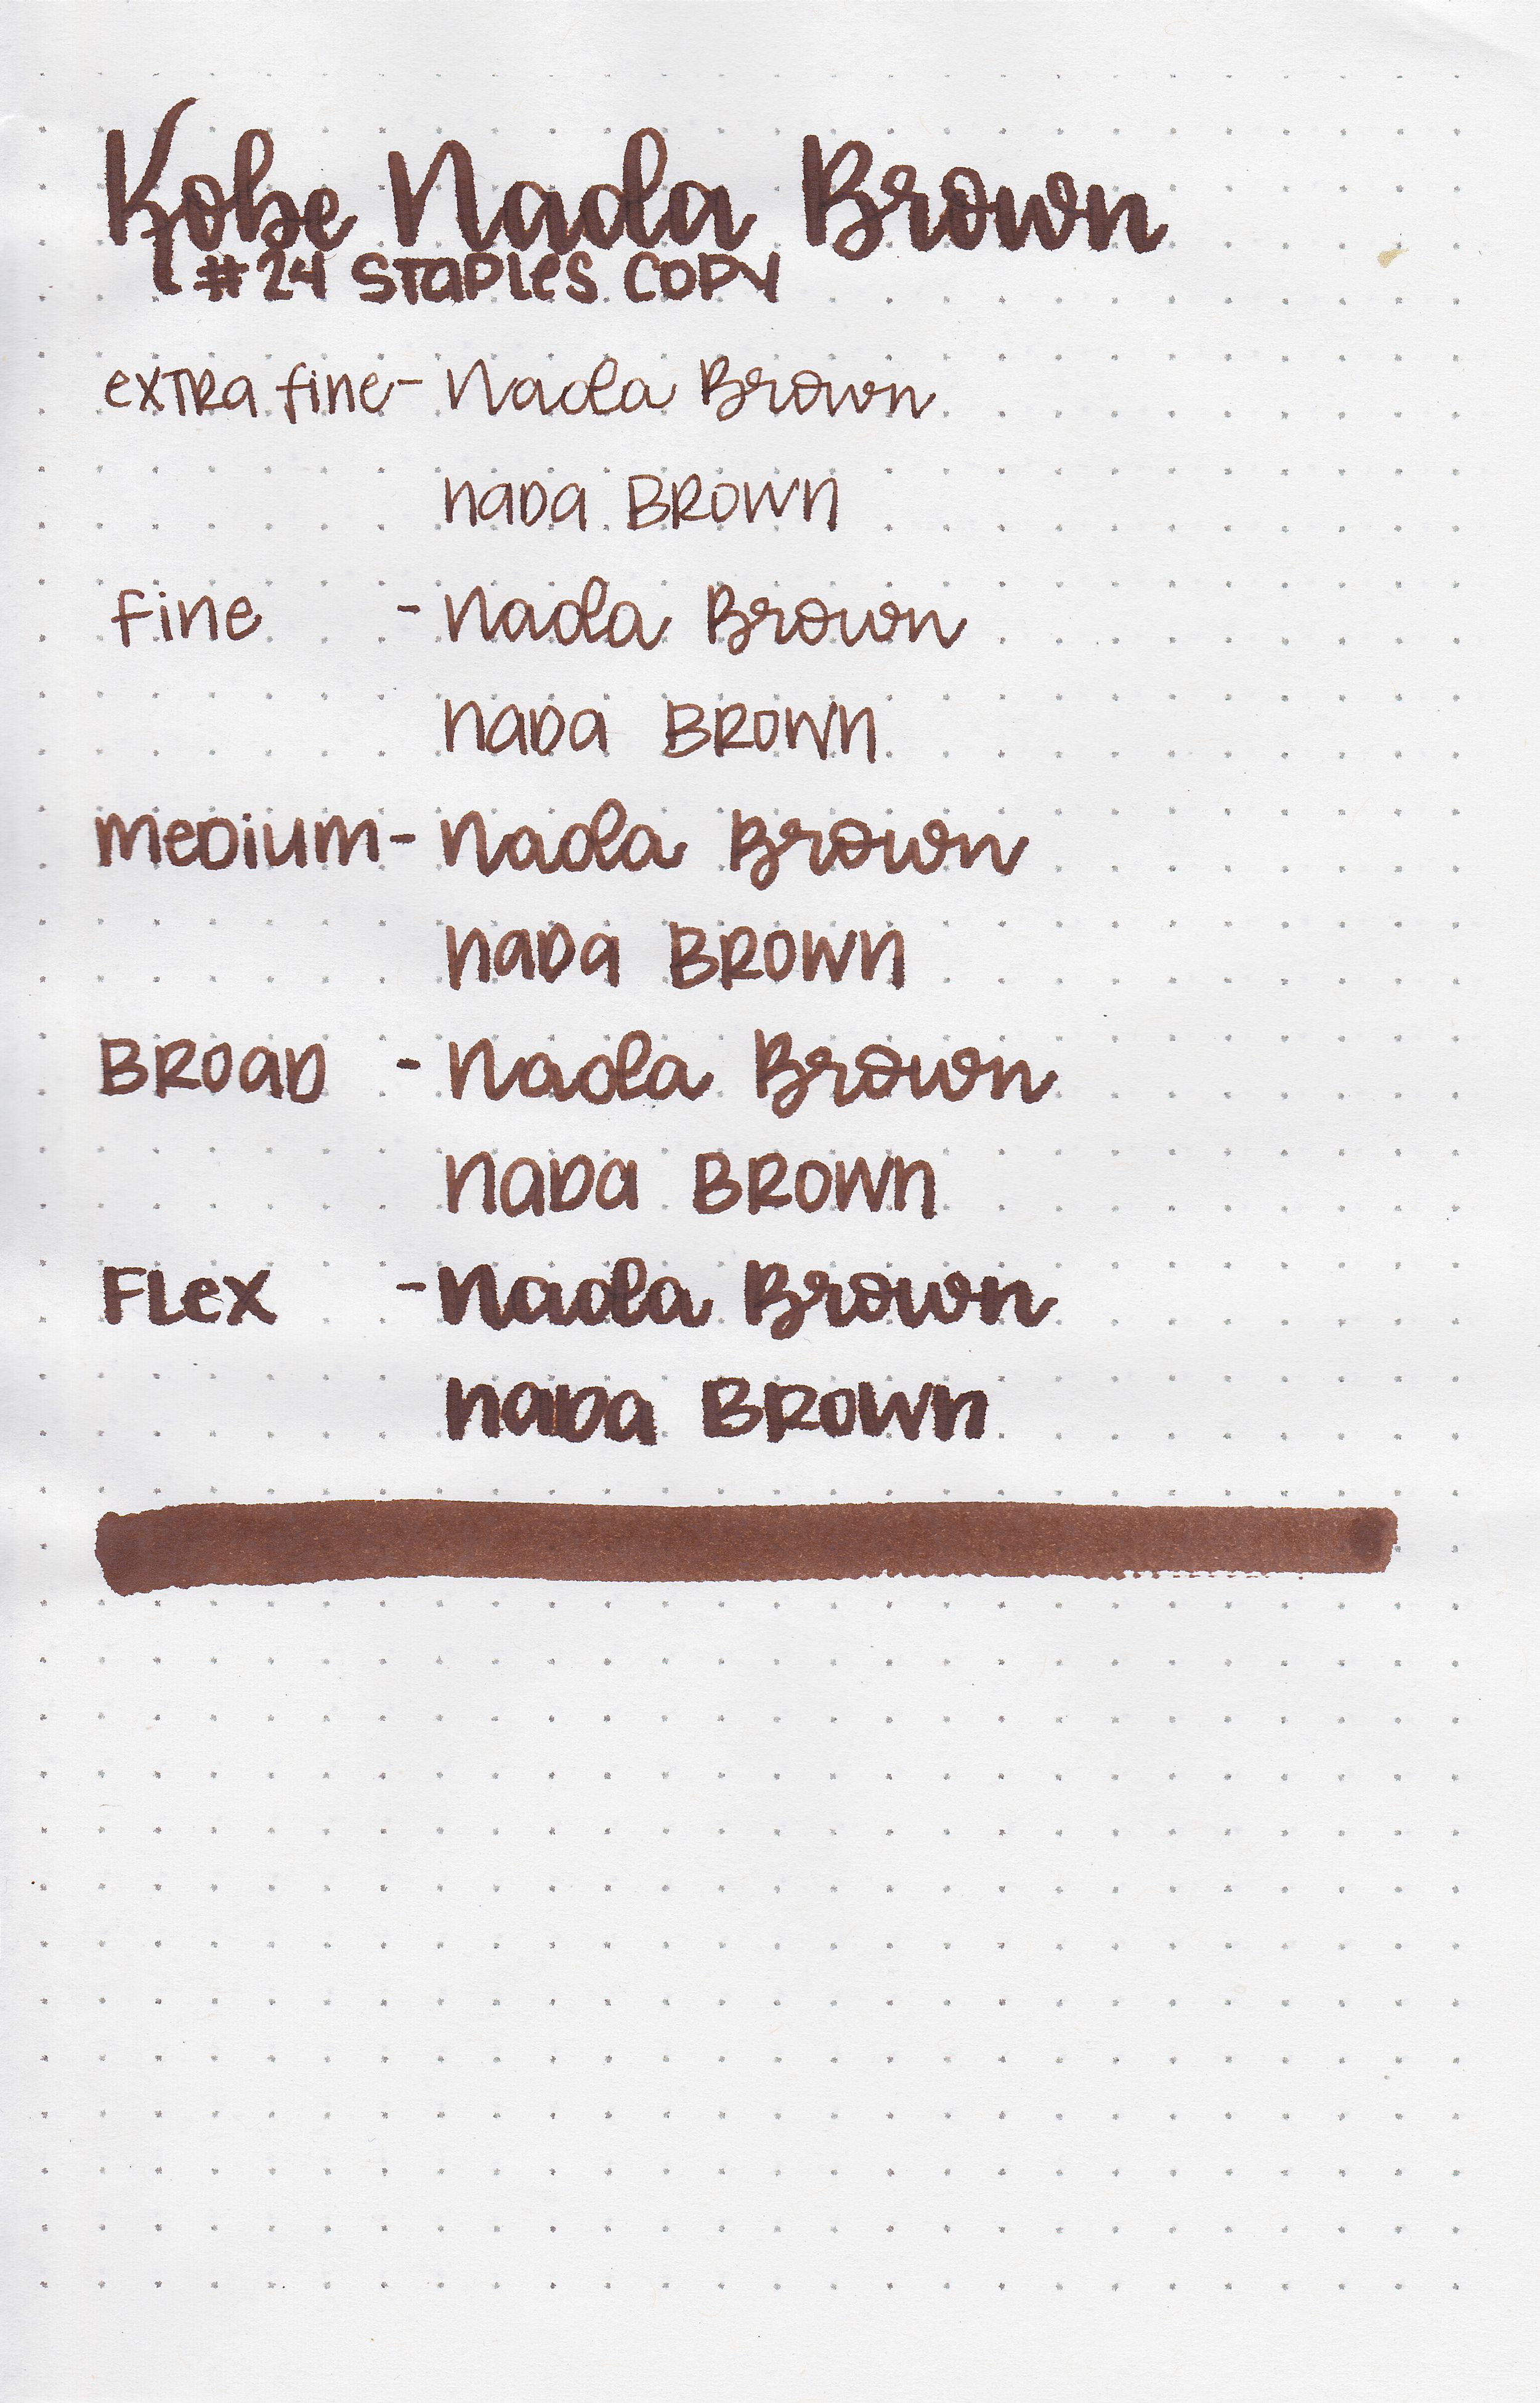 Kobe Nada Brown
#24 Staples Copy
extra fine- Nada Brown
nada Brown
fine - Nada Brown
nada Brown
medium- Nada Brown
nada Brown
Broad - Nada Brown
nada Brown
Flex - Nada Brown
nada Brown